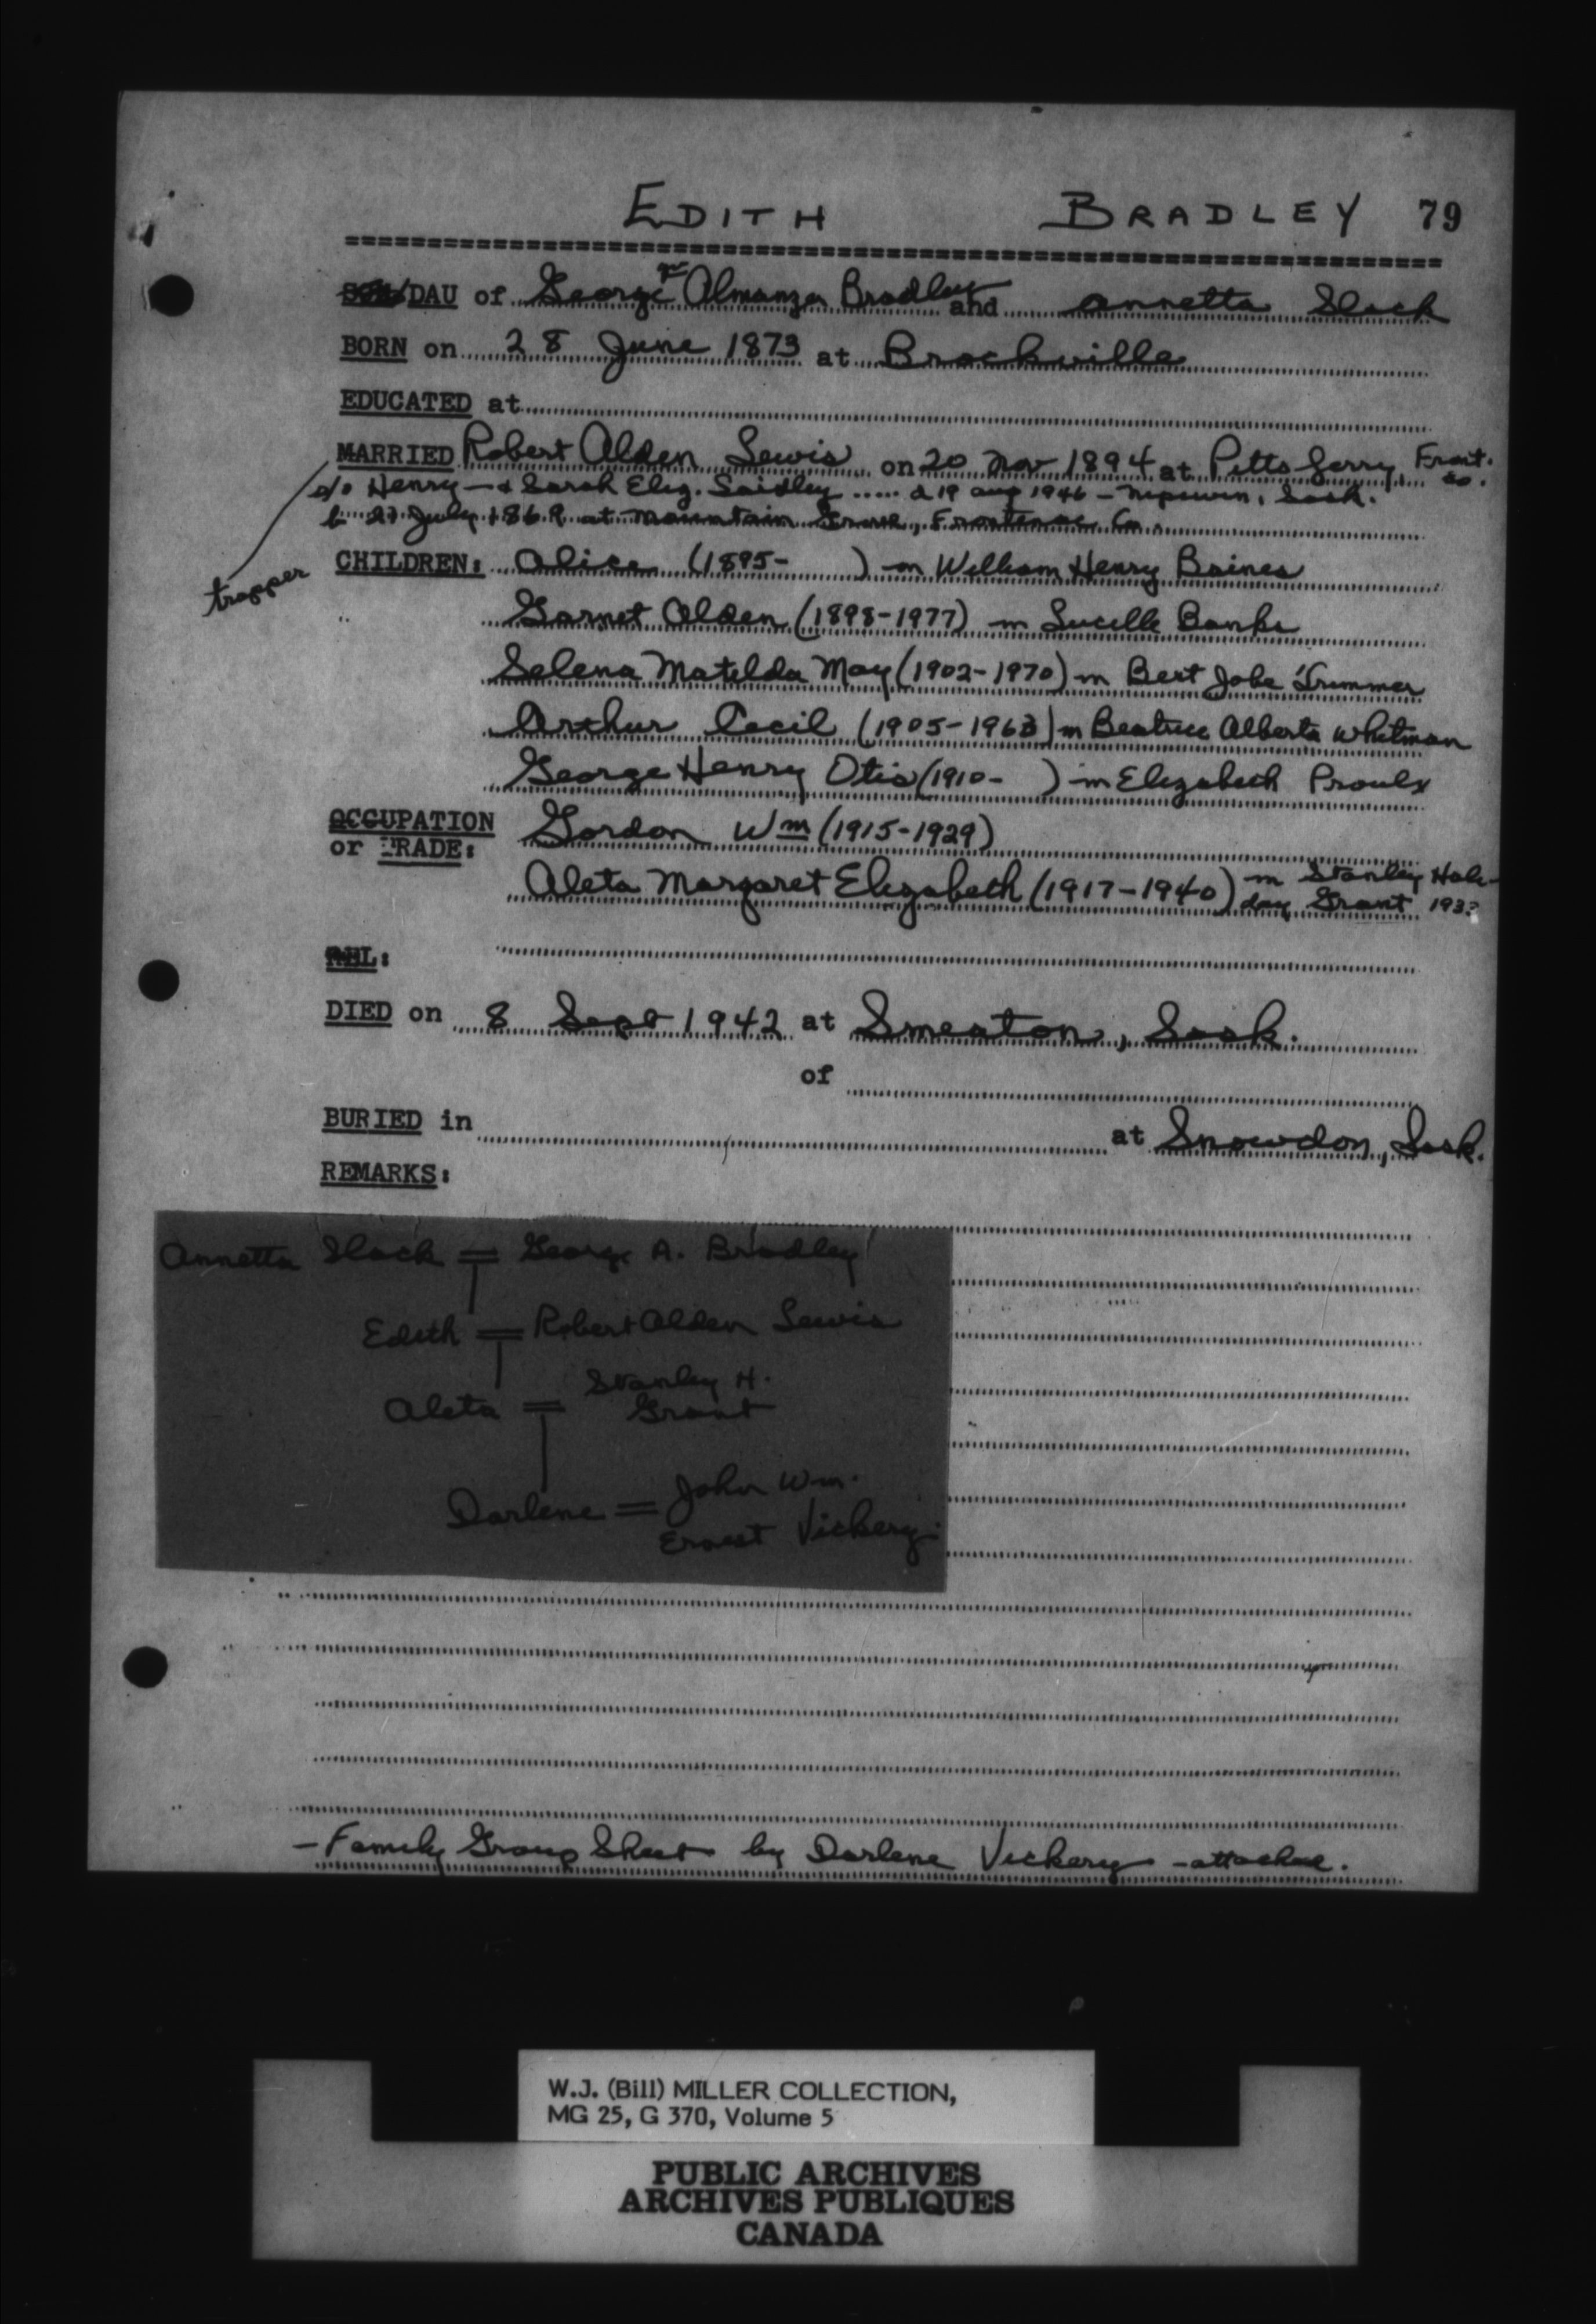 EDITH BRADLEY 79
SON/DAU of George Almanza Bradley and Annetta Slack
BORN on 28 June 1873 at Brockville
EDUCATED at
MARRIED Robert Alden Lewis on 20 Nov 1894 at Pitts Ferry, Front. Co.
s/o Henry — & Sarah Eliz. Saidley ..... d 19 Aug 1946 - Nipawin, Sask.
b 27 July 1869 at Mountain Grove, Frontenac Co.
trapper
CHILDREN: Alice (1895- ) m William Henry Baines
Garnet Alden (1898-1977) m Lucille Banks
Selena Matilda May (1902-1970) m Bert Jobe Trimmer
Arthur Cecil (1905-1963) m Beatrice Alberta Whitman
George Henry Otis (1910- ) m Elizabeth Proulx
OCCUPATION
or TRADE: Gordon Wm (1915-1929)
Aleta Margaret Elizabeth (1917-1940) m Stanley Hali-
day Grant 193?
REL:
DIED on 8 Sept 1942 at Smeaton, Sask.
of
BURIED in at Snowdon, Sask.
REMARKS:
Annetta Slack = George A. Bradley
Edith = Robert Alden Lewis
Aleta = Stanley H.
Grant
Darlene = John Wm.
Ernest Vickery.
- Family Group Sheet by Darlene Vickery - attached.
W.J. (Bill) MILLER COLLECTION,
MG 25, G 370, Volume 5
PUBLIC ARCHIVES
ARCHIVES PUBLIQUES
CANADA